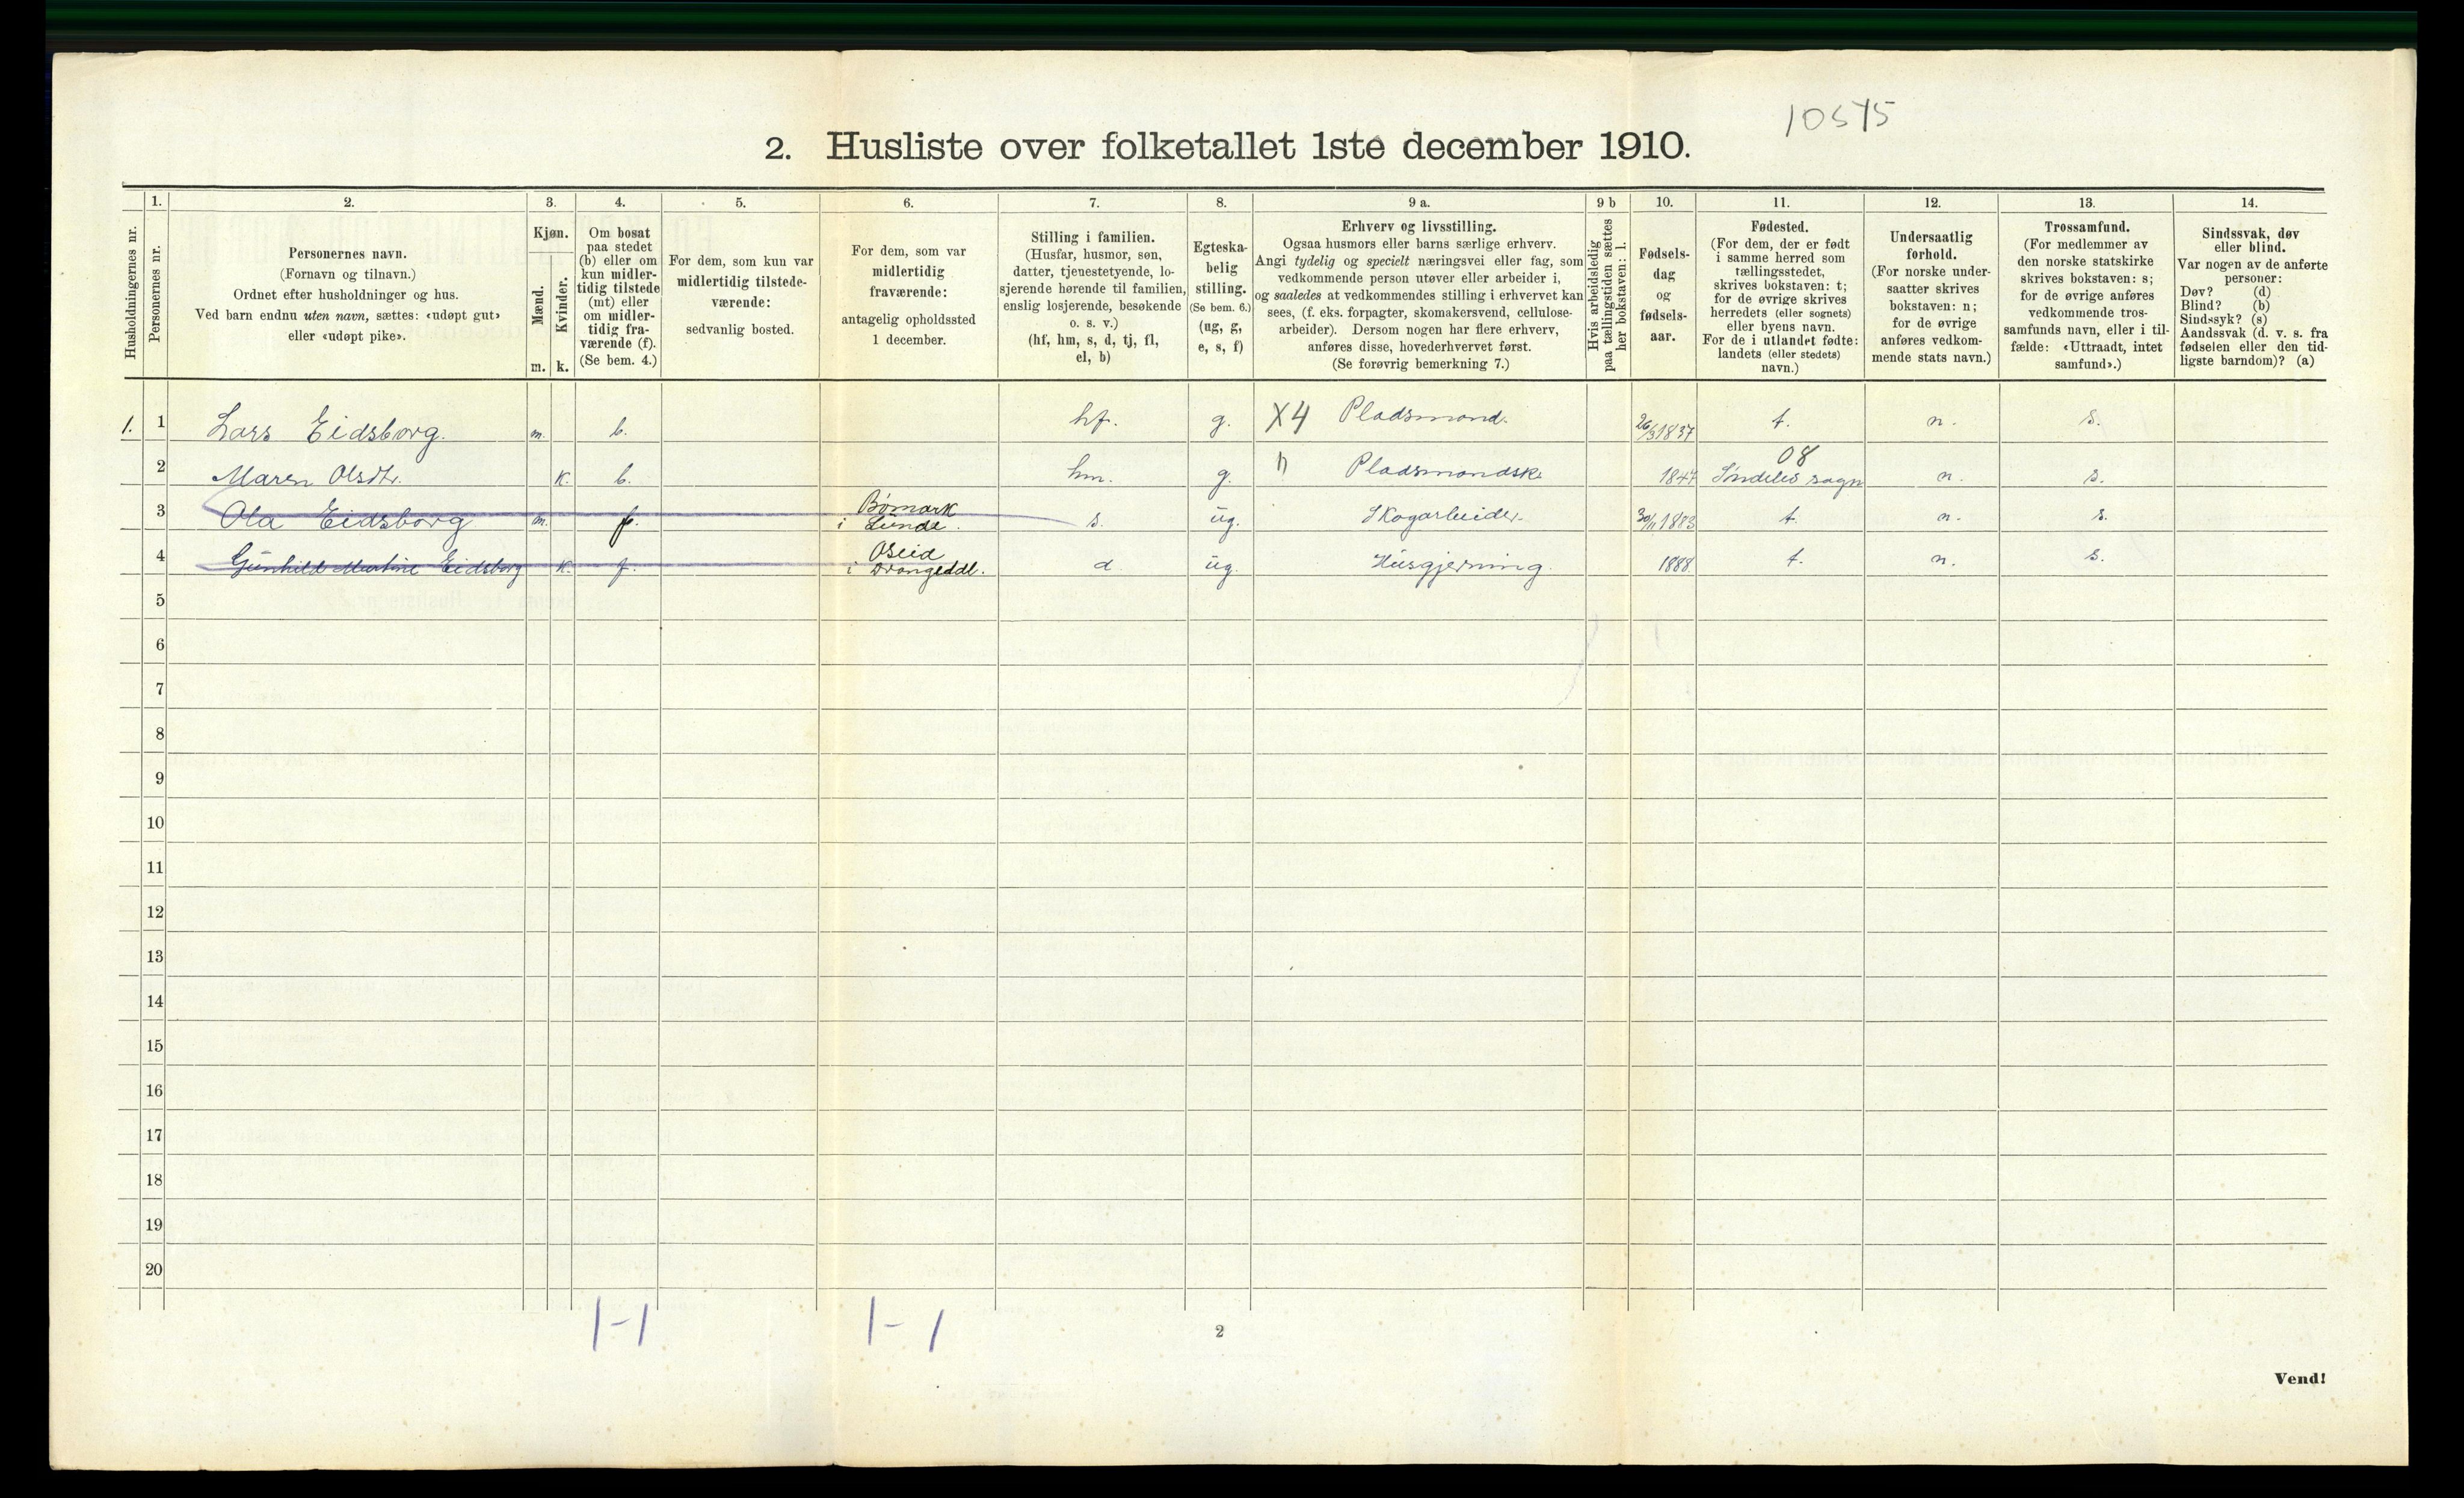 10575
2. Husliste over folketallet 1ste december 1910.
Husholdningernes nr.
1.
Personernes nr.
2.
Personernes navn.
(Fornavn og tilnavn.)
Ordnet efter husholdninger og hus.
Ved barn endnu uten navn, sættes: «udøpt gut»
eller «udøpt pike».
3.
Kjøn.
Mænd.
m.
Kvinder.
k.
4.
Om bosat
paa stedet
(b) eller om
kun midler-
tidig tilstede
(mt) eller
om midler-
tidig fra-
værende (f).
(Se bem. 4.)
5.
For dem, som kun var
midlertidig tilstede-
værende:
sedvanlig bosted.
6.
For dem, som var
midlertidig
fraværende:
antagelig opholdssted
1 december.
7.
Stilling i familien.
(Husfar, husmor, søn,
datter, tjenestetyende, lo-
sjerende hørende til familien,
enslig losjerende, besøkende
o. s. v.)
(hf, hm, s, d, tj, fl,
el, b)
8.
Egteska-
belig
stilling.
(Se bem. 6.)
(ug, g,
e, s, f)
9 a.
Erhverv og livsstilling.
Ogsaa husmors eller barns særlige erhverv.
Angi tydelig og specielt næringsvei eller fag, som
vedkommende person utøver eller arbeider i,
og saaledes at vedkommendes stilling i erhvervet kan
sees, (f. eks. forpagter, skomakersvend, cellulose-
arbeider). Dersom nogen har flere erhverv,
anføres disse, hovederhvervet først.
(Se forøvrig bemerkning 7.)
9 b
Hvis arbeidsledig
paa tællingstiden sættes
her bokstaven: l.
10.
Fødsels-
dag
og
fødsels-
aar.
11.
Fødested.
(For dem, der er født
i samme herred som
tællingsstedet,
skrives bokstaven: t;
for de øvrige skrives
herredets (eller sognets)
eller byens navn.
For de i utlandet fødte:
landets (eller stedets)
navn.)
12.
Undersaatlig
forhold.
(For norske under-
saatter skrives
bokstaven: n;
for de øvrige
anføres vedkom-
mende stats navn.)
13.
Trossamfund.
(For medlemmer av
den norske statskirke
skrives bokstaven: s;
for de øvrige anføres
vedkommende tros-
samfunds navn, eller i til-
fælde: «Uttraadt, intet
samfund».)
14.
Sindssvak, døv
eller blind.
Var nogen av de anførte
personer:
Døv? (d)
Blind? (b)
Sindssyk? (s)
Aandssvak (d. v. s. fra
fødselen eller den tid-
ligste barndom)? (a)
1. 1 Lars Eidsborg. m. b. hf. g. X4 Pladsmand. 26/3 1837 t. n. s.
08
2 Maren Olsdtr. k. b. hm. g. " Pladsmandsk. 1847 Søndeled sogn n. s.
Bømark
3 Ola Eidsborg m. f. i Lunde. s. ug. Skogarbeider. 30/11 1883 t. n. s.
Øseid
4 Gunhild Martine Eidsborg k. f. i Drangedal. d. ug. Husgjerning. 1888 t. n. s.
5
6
7
8
9
10
11
12
13
14
15
16
17
18
19
20
1-1 1-1
2
Vend!